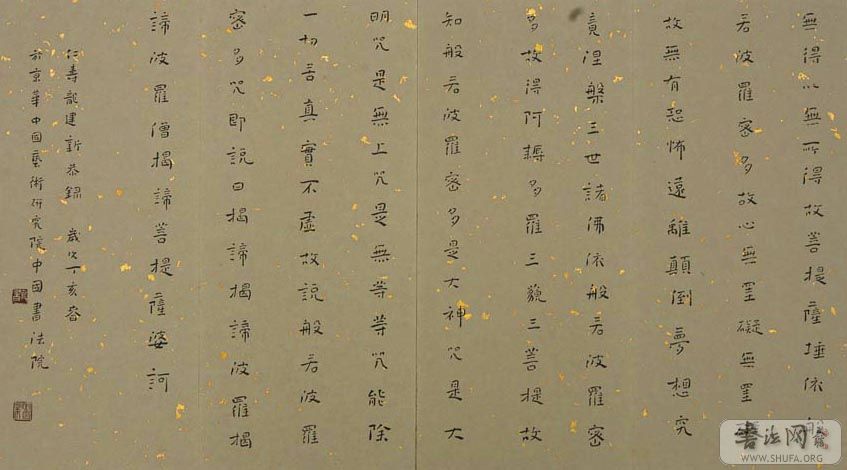 無得以無所得故菩提薩埵依般
若波羅密多故心無罣礙無罣
故無有恐怖遠離顛倒夢想究
竟涅槃三世諸佛依般若波羅密
多故得阿耨多羅三藐三菩提故
知般若波羅密多是大神咒是大
明咒是無上咒是無等等咒能除
一切苦真實不虛故說般若波羅
密多咒即說曰揭諦揭諦波羅揭
諦波羅僧揭諦菩提薩婆訶
仁壽龍建新恭錄 歲次丁亥春
於京華中國藝術研究院中國書法院
书法网
WWW.SHUFA.ORG